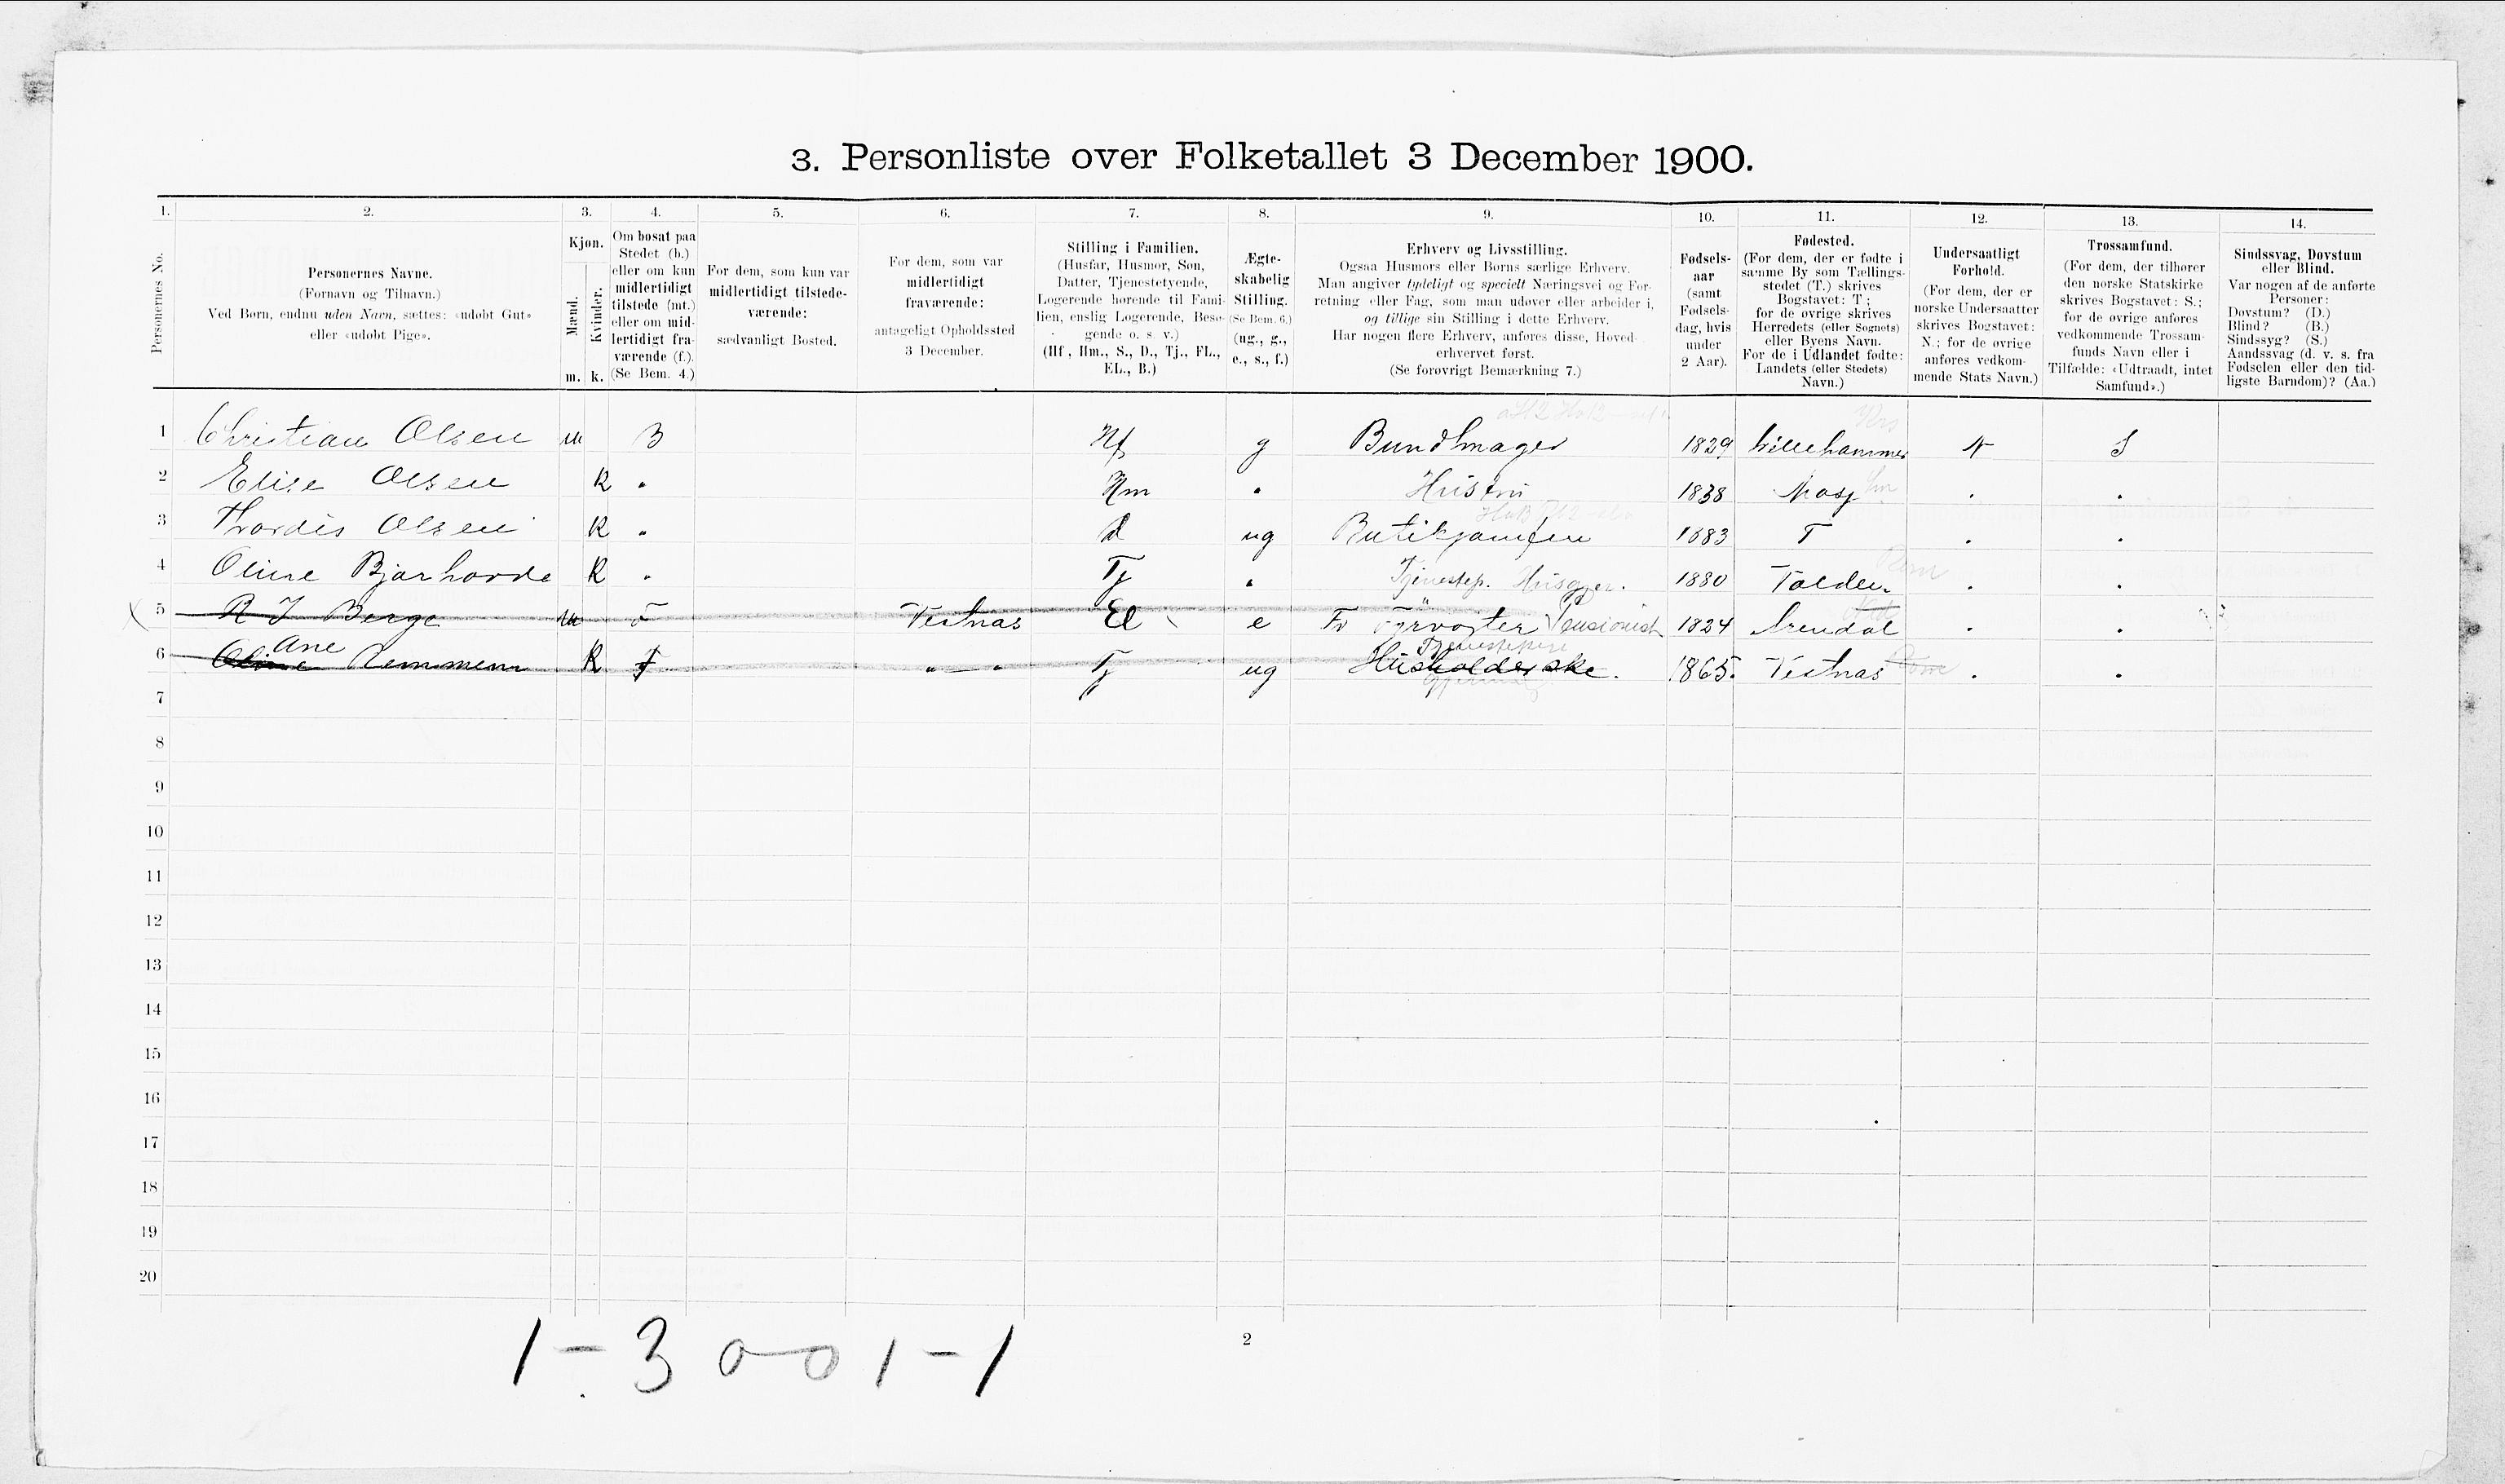 3. Personliste over Folketallet 3 December 1900.
1. 2. 3. 4. 5. 6. 7. 8. 9. 10. 11. 12. 13. 14.
Personernes No.
Personernes Navne.
(Fornavn og Tilnavn.)
Ved Børn, endnu uden Navn, sættes: «udøbt Gut»
eller «udøbt Pige».
Kjøn.
Mænd.
Kvinder.
m. k.
Om bosat paa
Stedet (b.)
eller om kun
midlertidigt
tilstede (mt.)
eller om mid-
lertidigt fra-
værende (f.).
(Se Bem. 4.)
For dem, som kun var
midlertidigt tilstede-
værende:
sædvanligt Bosted.
For dem, som var
midlertidigt
fraværende:
antageligt Opholdssted
3 December.
Stilling i Familien.
(Husfar, Husmor, Søn,
Datter, Tjenestetyende,
Logerende hørende til Fami-
lien, enslig Logerende, Besø-
gende o. s. v.)
(Hf., Hm., S., D., Tj., FL.,
EL., B.)
Ægte-
skabelig
Stilling.
(Se Bem. 6.)
(ug., g.,
e., s., f.)
Erhverv og Livsstilling.
Ogsaa Husmors eller Børns særlige Erhverv.
Man angiver tydeligt og specielt Næringsvei og For-
retning eller Fag, som man udøver eller arbeider i,
og tillige sin Stilling i dette Erhverv.
Har nogen flere Erhverv, anføres disse, Hoved-
erhvervet først.
(Se forøvrigt Bemærkning 7.)
Fødsels-
aar
(samt
Fødsels-
dag, hvis
under
2 Aar).
Fødested.
(For dem, der er fødte i
samme By som Tællings-
stedet (T.) skrives
Bogstavet: T;
for de øvrige skrives
Herredets (eller Sognets)
eller Byens Navn.
For de i Udlandet fødte:
Landets (eller Stedets)
Navn.)
Undersaatligt
Forhold.
(For dem, der er
norske Undersaatter
skrives Bogstavet:
N.; for de øvrige
anføres vedkom-
mende Stats Navn.)
Trossamfund.
(For dem, der tilhører
den norske Statskirke
skrives Bogstavet: S.;
for de øvrige anføres
vedkommende Trossam-
funds Navn eller i
Tilfælde: «Udtraadt, intet
Samfund».)
Sindssvag, Døvstum
eller Blind.
Var nogen af de anførte
Personer:
Døvstum? (D.)
Blind? (B.)
Sindssyg? (S.)
Aandssvag (d. v. s. fra
Fødselen eller den tid-
ligste Barndom)? (Aa.)
1 Christian Olsen m B Hf g Bundtmager 1829 Lillehammer N S
2 Elise Olsen K " Hm " Hustru 1838 Mosj " "
3 Thordis Olsen K " d ug Butikjomfru 1883 T " "
4 Oline Bjørhovde K " Tj " Tjenestep. Husgjer. 1880 " "
5 R J Berge m F Vestnæs El e Fv Fyrvogter Pensionist 1824 Arendal " "
Ane Tjenestepige
6 Oline Remmem K F " — " Tj ug Husholderske. 1865. Vestnæs " "
7
8
9
10
11
12
13
14
15
16
17
18
19
20
1 - 3 0 - 0 1 - 1
2